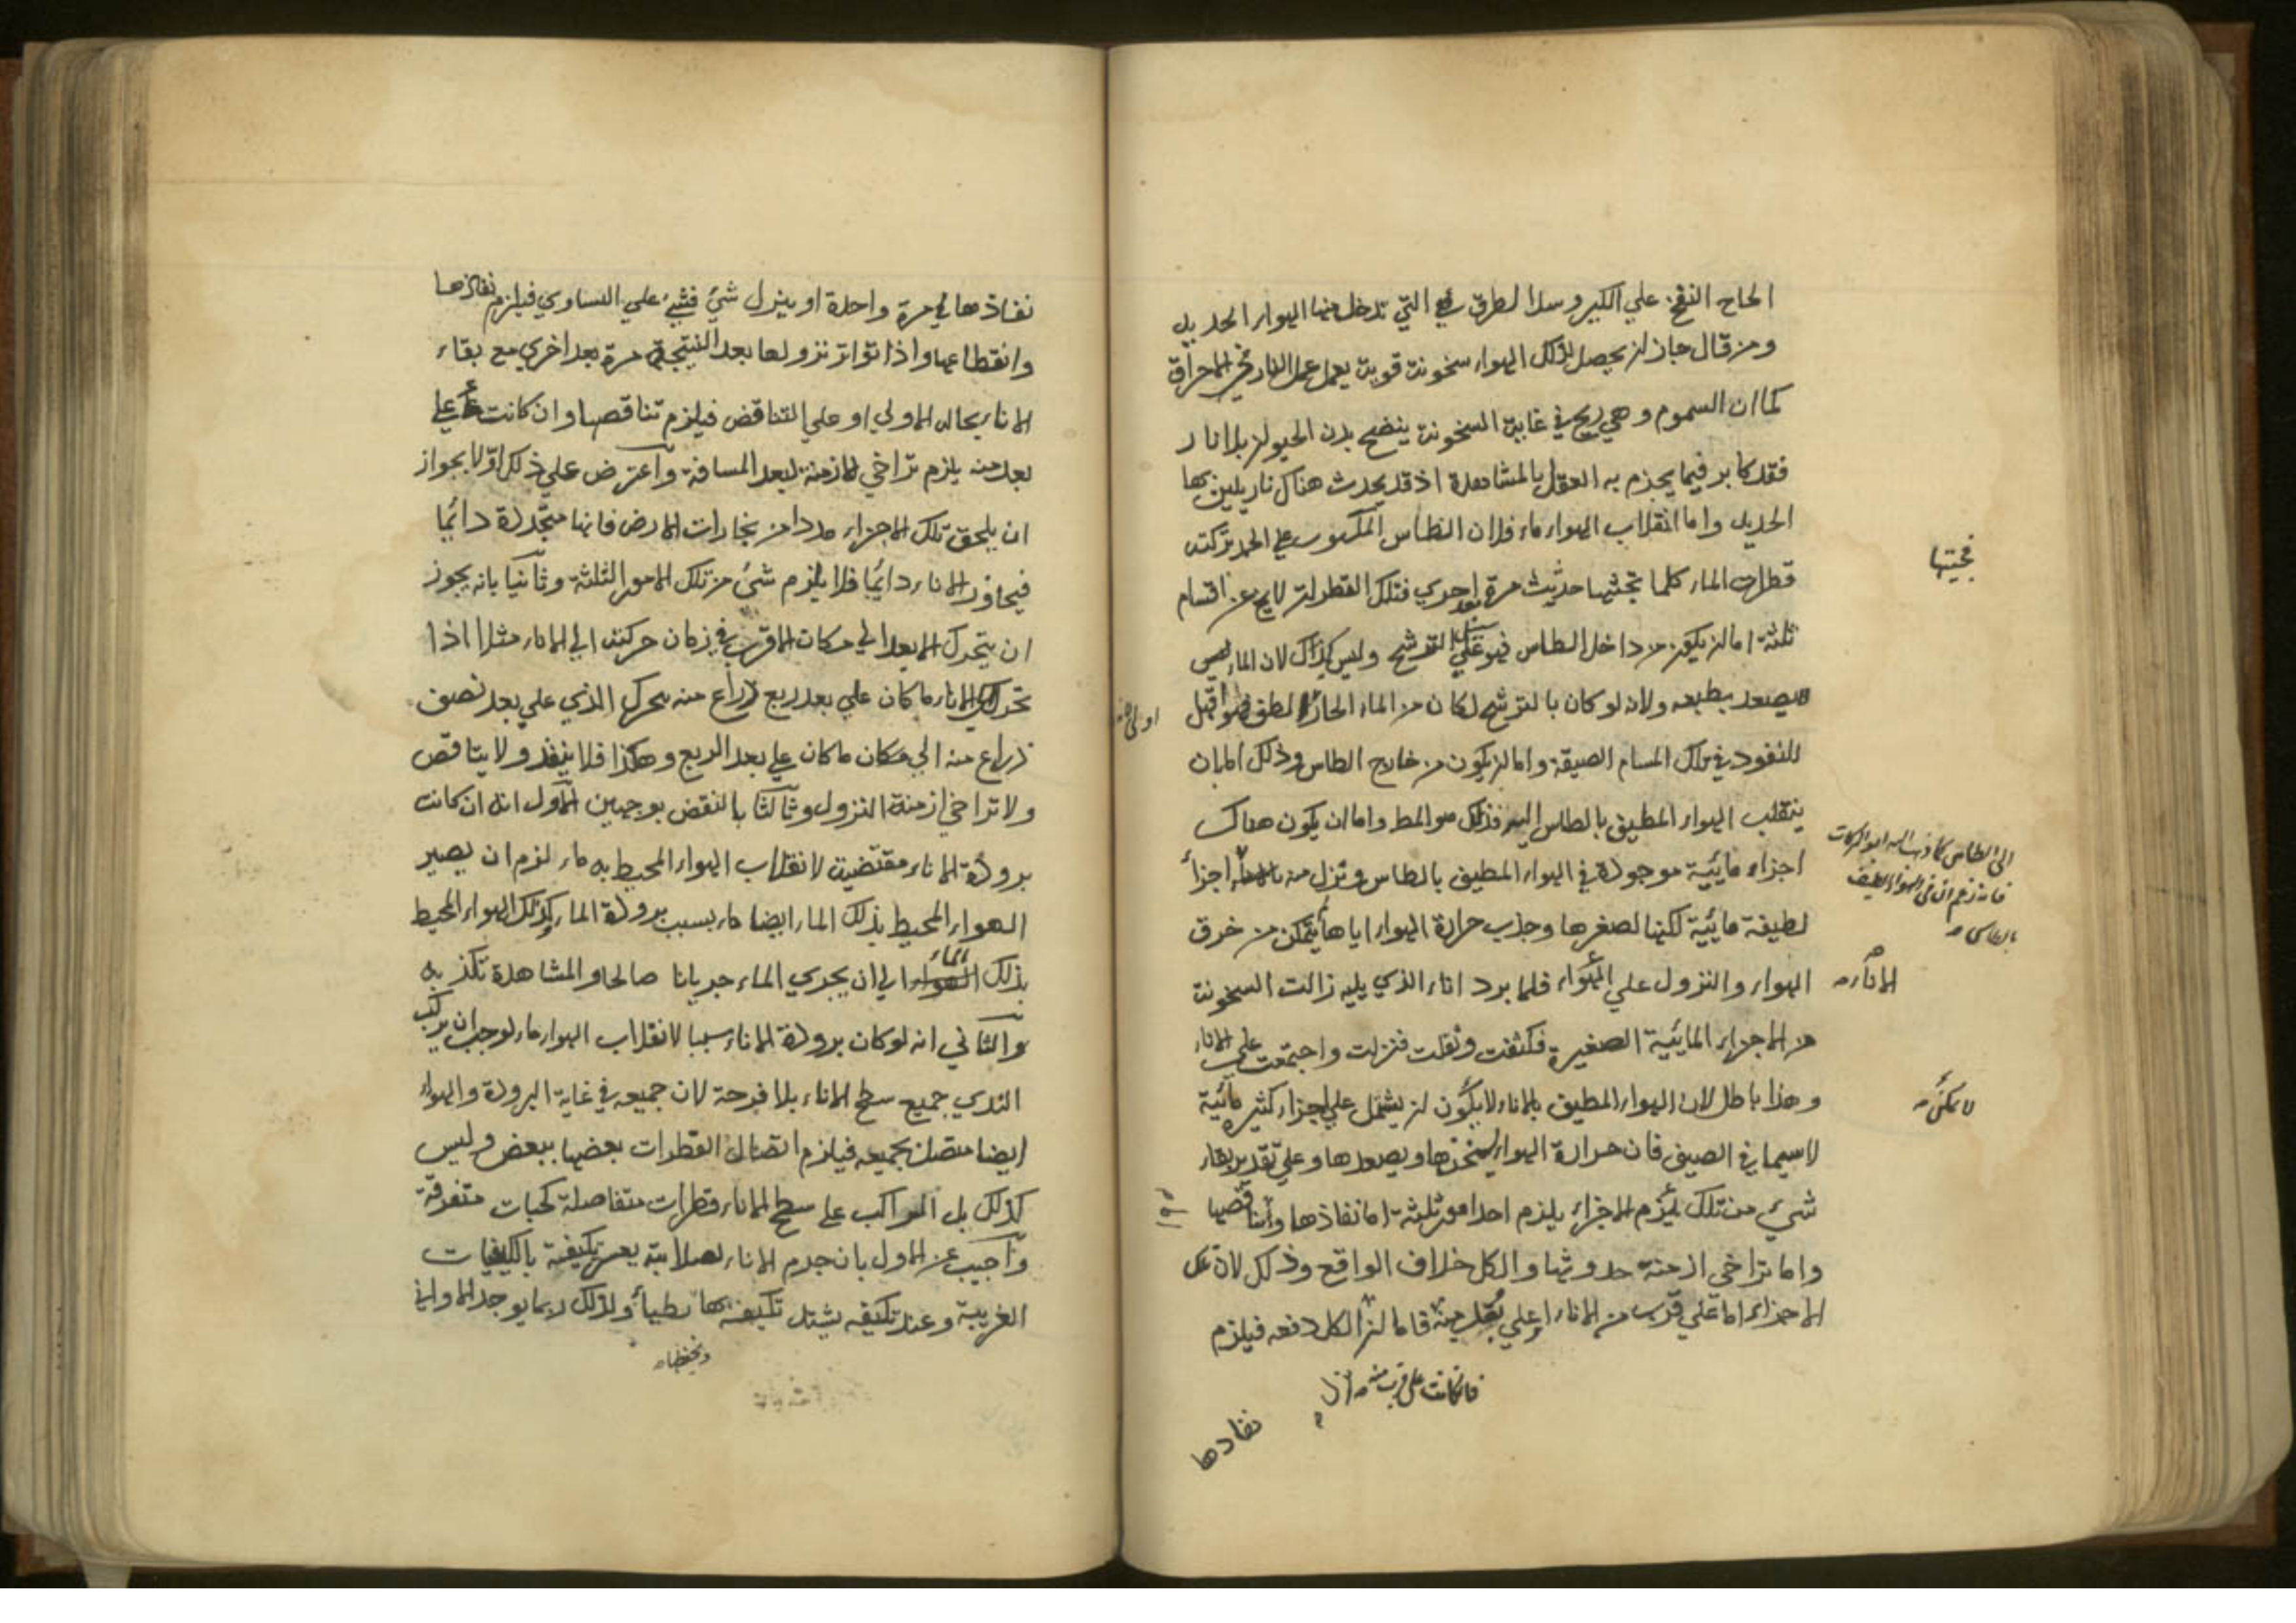 الحاح النفخ علي الكير وسد الطرق التي تدخل منها الهواء الجديد
ومن قال جاز ان يحصل لذلك الهواء سخونة قوية يعمل عمل النار في الاحراق
كما ان السموم وهي ريح في غاية السخونة ينضج بدن الحيوان بلا نار
فقد كابر فيما يجزم به العقل بالمشاهدة اذ قد يحدث هناك نار يلين بها
الحديد واما انقلاب الهواء ماء فلان الطاس المكبوب علي الجمد تركبه
فنحيتها
قطرات الماء كلما تحثها حديث مرة بعد اخري فتلك القطرات لا يخ عن اقسام
ثلثة اما ان يكون من داخل الطاس فهو علي سبيل الترشح وليس كذلك لان الماء ليس
يصعد بطبعه ولانه لو كان بالترشح لكان من الماء الحار اولي لانه الطف واقبل
للنفود في تلك المسام الضيقة واما ان يكون من خارج الطاس وذلك اما بان
ينقلب الهواء المطيف بالطاس اليه فذلك هو المط واما ان يكون هناك
اجزاء مائية موجودة في الهواء المطيف بالطاس وتنزل منه
الى الطاس كما ذهب اليه ابو البركات
فانه زعم ان في الهواء المطيف
بالطاس
اجزاء
لطيفة مائية لكنها لصغرها وجذب حرارة الهواء اياها لم يتمكن من خرق
الهواء والنزول علي الاناء فلما برد اناء الذي يليه زالت السخونة
الاناء
من الاجزاء المائية الصغيرة فكثفت وثقلت فنزلت واجتمعت علي الاناء
وهذا باطل لان الهواء المطيف بالاناء لا يكون ان يشتمل علي اجزاء كثيرة مائية
لا يمكن
لاسيما في الصيف فان حرارة الهواء يسخنها ويصعدها وعلي تقدير بقاء
شيء من تلك الاجزاء يلزم احد امور ثلثة اما نفاذها واما تناقصها
واما تراخي ازمنة حدوثها والكل خلاف الواقع وذلك لان تلك
الاجزاء اما علي قرب من الاناء او علي بعد منه فاما ان نزل الكل دفعه فيلزم
فان كانت على قرب منه
نفادها
نفاذها في مرة واحدة او ينزل شئ فشئ علي التساوي فيلزم نفاذها
وانقطاعها واذا تواتر نزولها بعد التنحية مرة بعد اخري مع بقاء
الاناء بحاله الاولي او علي التناقض فيلزم تناقصها وان كانت علي
بعد منه يلزم تراخي الازمنة لبعد المسافة واعترض علي ذلك اولا بجواز
ان يلحق تلك الاجزاء مددا من بخارات الارض فانها متجددة دائما
فيجاور الاناء دائما فلا يلزم شئ من تلك الامور الثلثة وثانيا بانه يجوز
ان يتحرك الابعد الي مكان الاقرب في زمان حركته الي الاناء مثلا اذا
تحرك الي الاناء ما كان علي بعد ربع ذراع منه يحرك الذي علي بعد نصف
ذراع منه الي مكان ما كان علي بعد الربع وهكذا فلا ينفد ولا يتناقص
ولا تراخي ازمنة النزول وثالثا بالنقض بوجهين الاول انه ان كانت
برودة الاناء مقتضية لانقلاب الهواء المحيط به ماء لزم ان يصير
الهواء المحيط بذلك الماء ايضا ماء بسبب برودة الماء وكذلك الهواء المحيط
بذلك الماء الي ان يجري الماء جريانا صالحا والمشاهدة تكذبه
والثاني انه لو كان برودة الاناء سببا لانقلاب الهواء ماء لوجب ان يركب
الندي جميع سطح الاناء بلا فرجة لان جميعه في غاية البرودة والهواء
ايضا متصل بجميعه فيلزم اتصال القطرات بعضها ببعض وليس
كذلك بل المراكب علي سطح الاناء قطرات متفاصلة كحبات متفرقة
واجيب عن الاول بان جرم الاناء لصلابته يعسر تكيفه بالكيفيات
الغريبة وعند تكيفه يشتد تكيفه بها بطيأ ولذلك ربما يوجد الاواني
ويحفظها